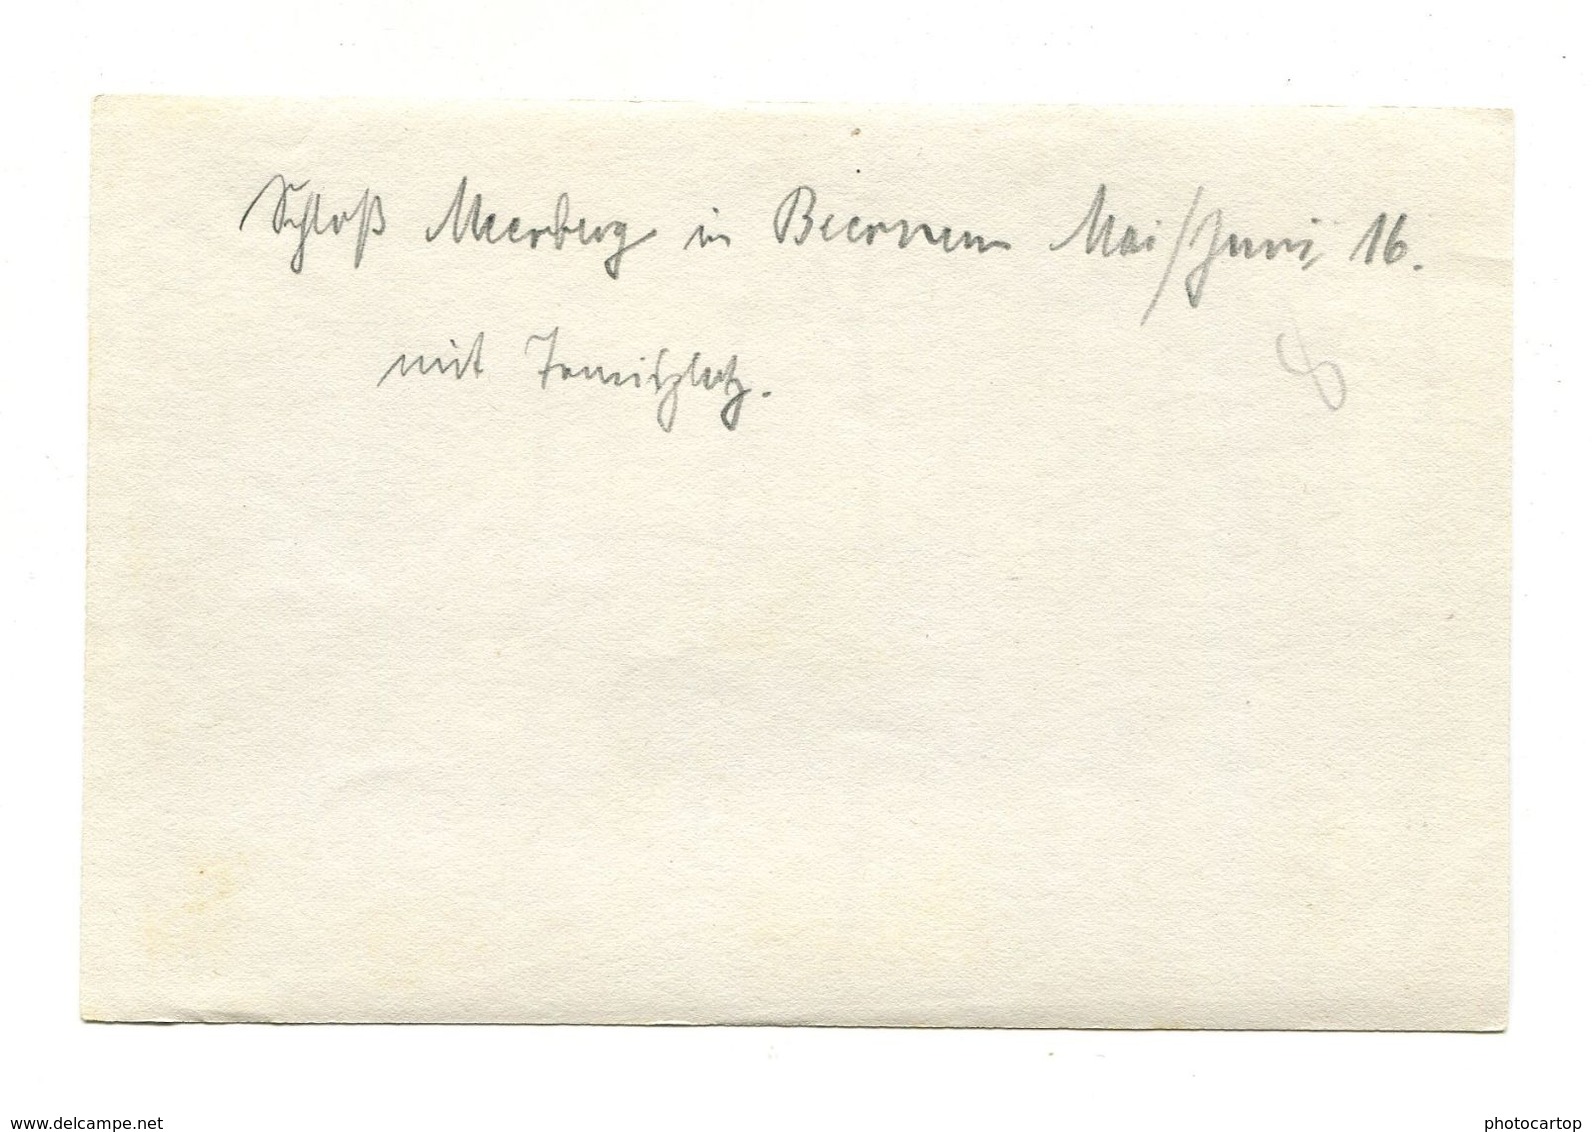 Schloß Meerberg in Beernem Mai/Juni 16.
mit Tennisplatz.
8
www.delcampe.net
photocartop